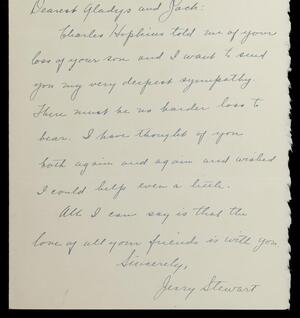 Dearest Gladys and Jack:
Charles Hopkins told me of your
loss of your son and I want to send
you my very deepest sympathy.
There must be no harder loss to
bear. I have thought of you
both again and again and wished
I could help even a little.
All I can say is that the
love of all your friends is with you.
Sincerely,
Jerry Stewart